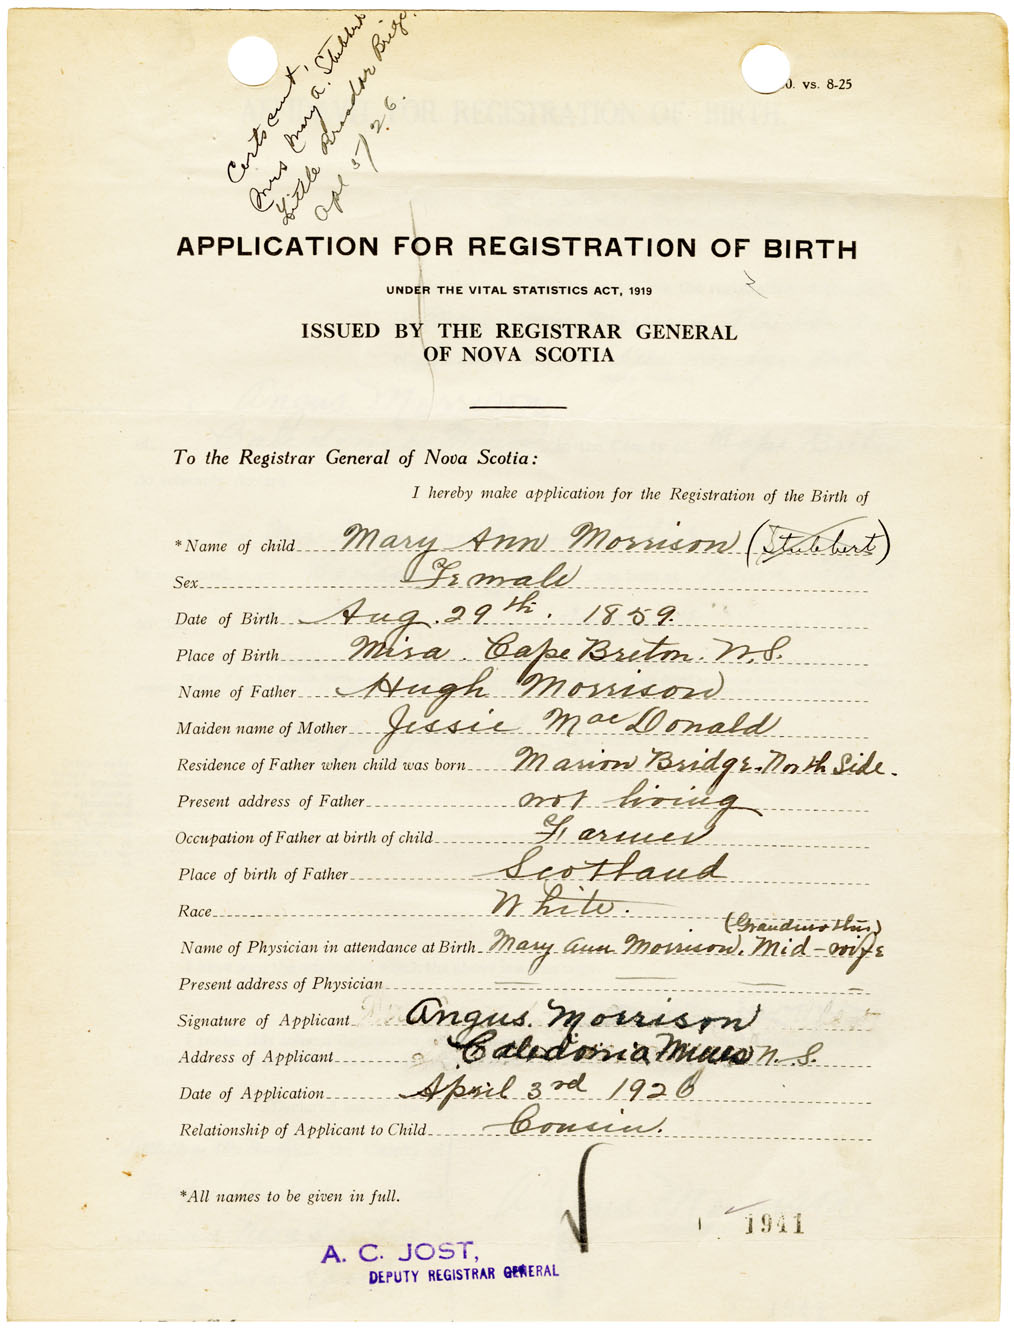 Cert sent,
Mrs Mary A. Stubbert
Little Bras d'or Bridge.
Apl 5/26.
0. vs. 8-25
APPLICATION FOR REGISTRATION OF BIRTH
UNDER THE VITAL STATISTICS ACT, 1919
ISSUED BY THE REGISTRAR GENERAL
OF NOVA SCOTIA
To the Registrar General of Nova Scotia:
I hereby make application for the Registration of the Birth of
*Name of child Mary Ann Morrison (Stubbert)
Sex Female
Date of Birth Aug. 29th. 1859.
Place of Birth Mira. Cape Breton. N.S.
Name of Father Hugh Morrison
Maiden name of Mother Jessie MacDonald
Residence of Father when child was born Marion Bridge. North Side.
Present address of Father not living
Occupation of Father at birth of child Farmer
Place of birth of Father Scotland
Race White.
(Grandmother)
Name of Physician in attendance at Birth Mary Ann Morrison. Mid-wife
Present address of Physician
Signature of Applicant Angus. Morrison
Address of Applicant Caledonia Mines N.S.
Date of Application April 3rd 1926
Relationship of Applicant to Child Cousin.
*All names to be given in full.
1941
A. C. JOST,
DEPUTY REGISTRAR GENERAL